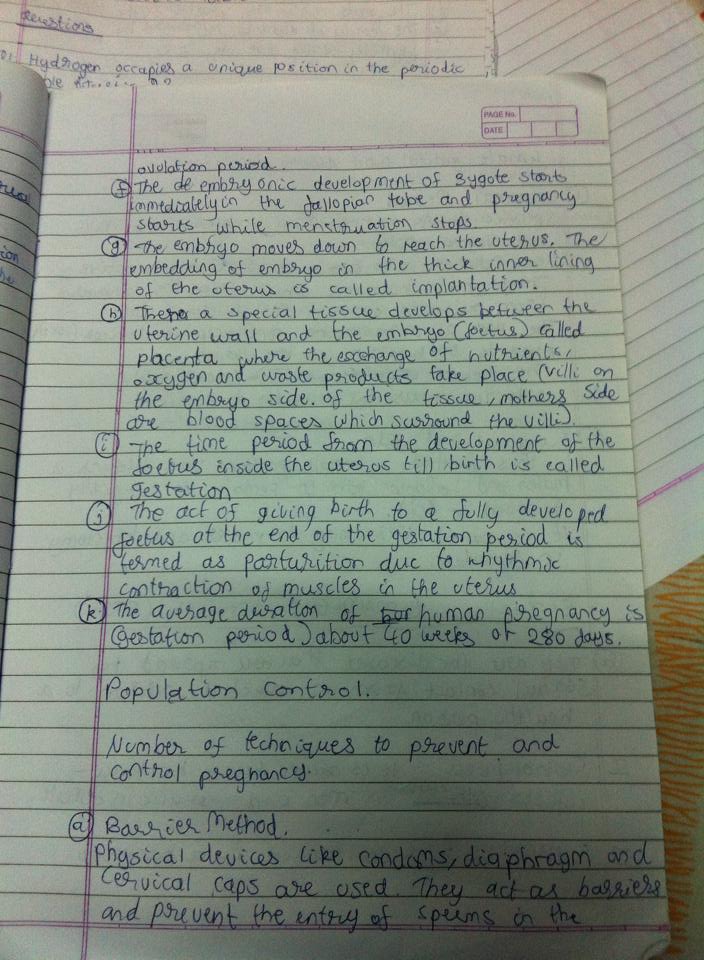 Questions
Hydrogen occupies a unique position in the periodic
PAGE No.
DATE
ovulation period.
(f) The de embryonic development of zygote starts
immediately in the fallopian tube and pregnancy
starts while menstruation stops.
(g) The embryo moves down to reach the uterus. The
embedding of embryo in the thick inner lining
of the uterus is called implantation.
(h) There a special tissue develops between the
uterine wall and the embryo (foetus) called
placenta where the exchange of nutrients,
oxygen and waste products take place (villi on
the embryo side of the tissue, mothers side
are blood spaces which surround the villi).
(i) The time period from the development of the
foetus inside the uterus till birth is called
gestation
(j) The act of giving birth to a fully developed
foetus at the end of the gestation period is
termed as parturition due to rhythmic
contraction of muscles in the uterus
(k) The average duration of human pregnancy is
(gestation period) about 40 weeks or 280 days.
Population Control.
Number of techniques to prevent and
control pregnancy.
(a) Barrier Method.
Physical devices like condoms, diaphragm and
Cervical caps are used. They act as barriers
and prevent the entry of sperms in the